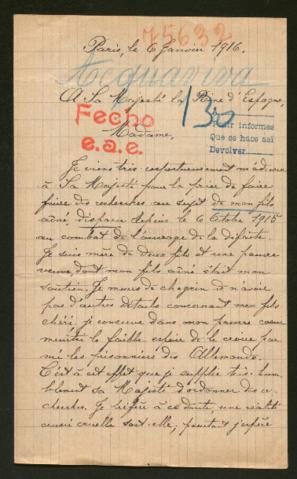 75632
Paris, le 6 Janvier 1916.
Acquaviva
A Sa Majesté la Reine d'Espagne,
Fecho
e.a.e.
informes
Que se hace así
Devolver
Madame,
Je viens très respectueusement m'adresser
à Sa Majesté pour la prier de faire
faire des recherches au sujet de mon fils
aîné, disparu depuis le 6 Octobre 1915
au combat de l'ouvrage de la défaite.
Je suis mère de deux fils et une pauvre
veuve dont mon fils aîné était mon
soutien. Je meurs de chagrin de n'avoir
pas d'autres détails concernant mon fils
chéri, je conserve dans mon pauvre cœur
meurtri la faible de le croire par
mi les prisonniers des Allemands.
C'est à cet effet que je supplie très hum
blement Sa Majesté d'ordonner des re
cherches. Je préfère à ce doute, une réalité
aussi cruelle soit-elle, pourtant j'espère